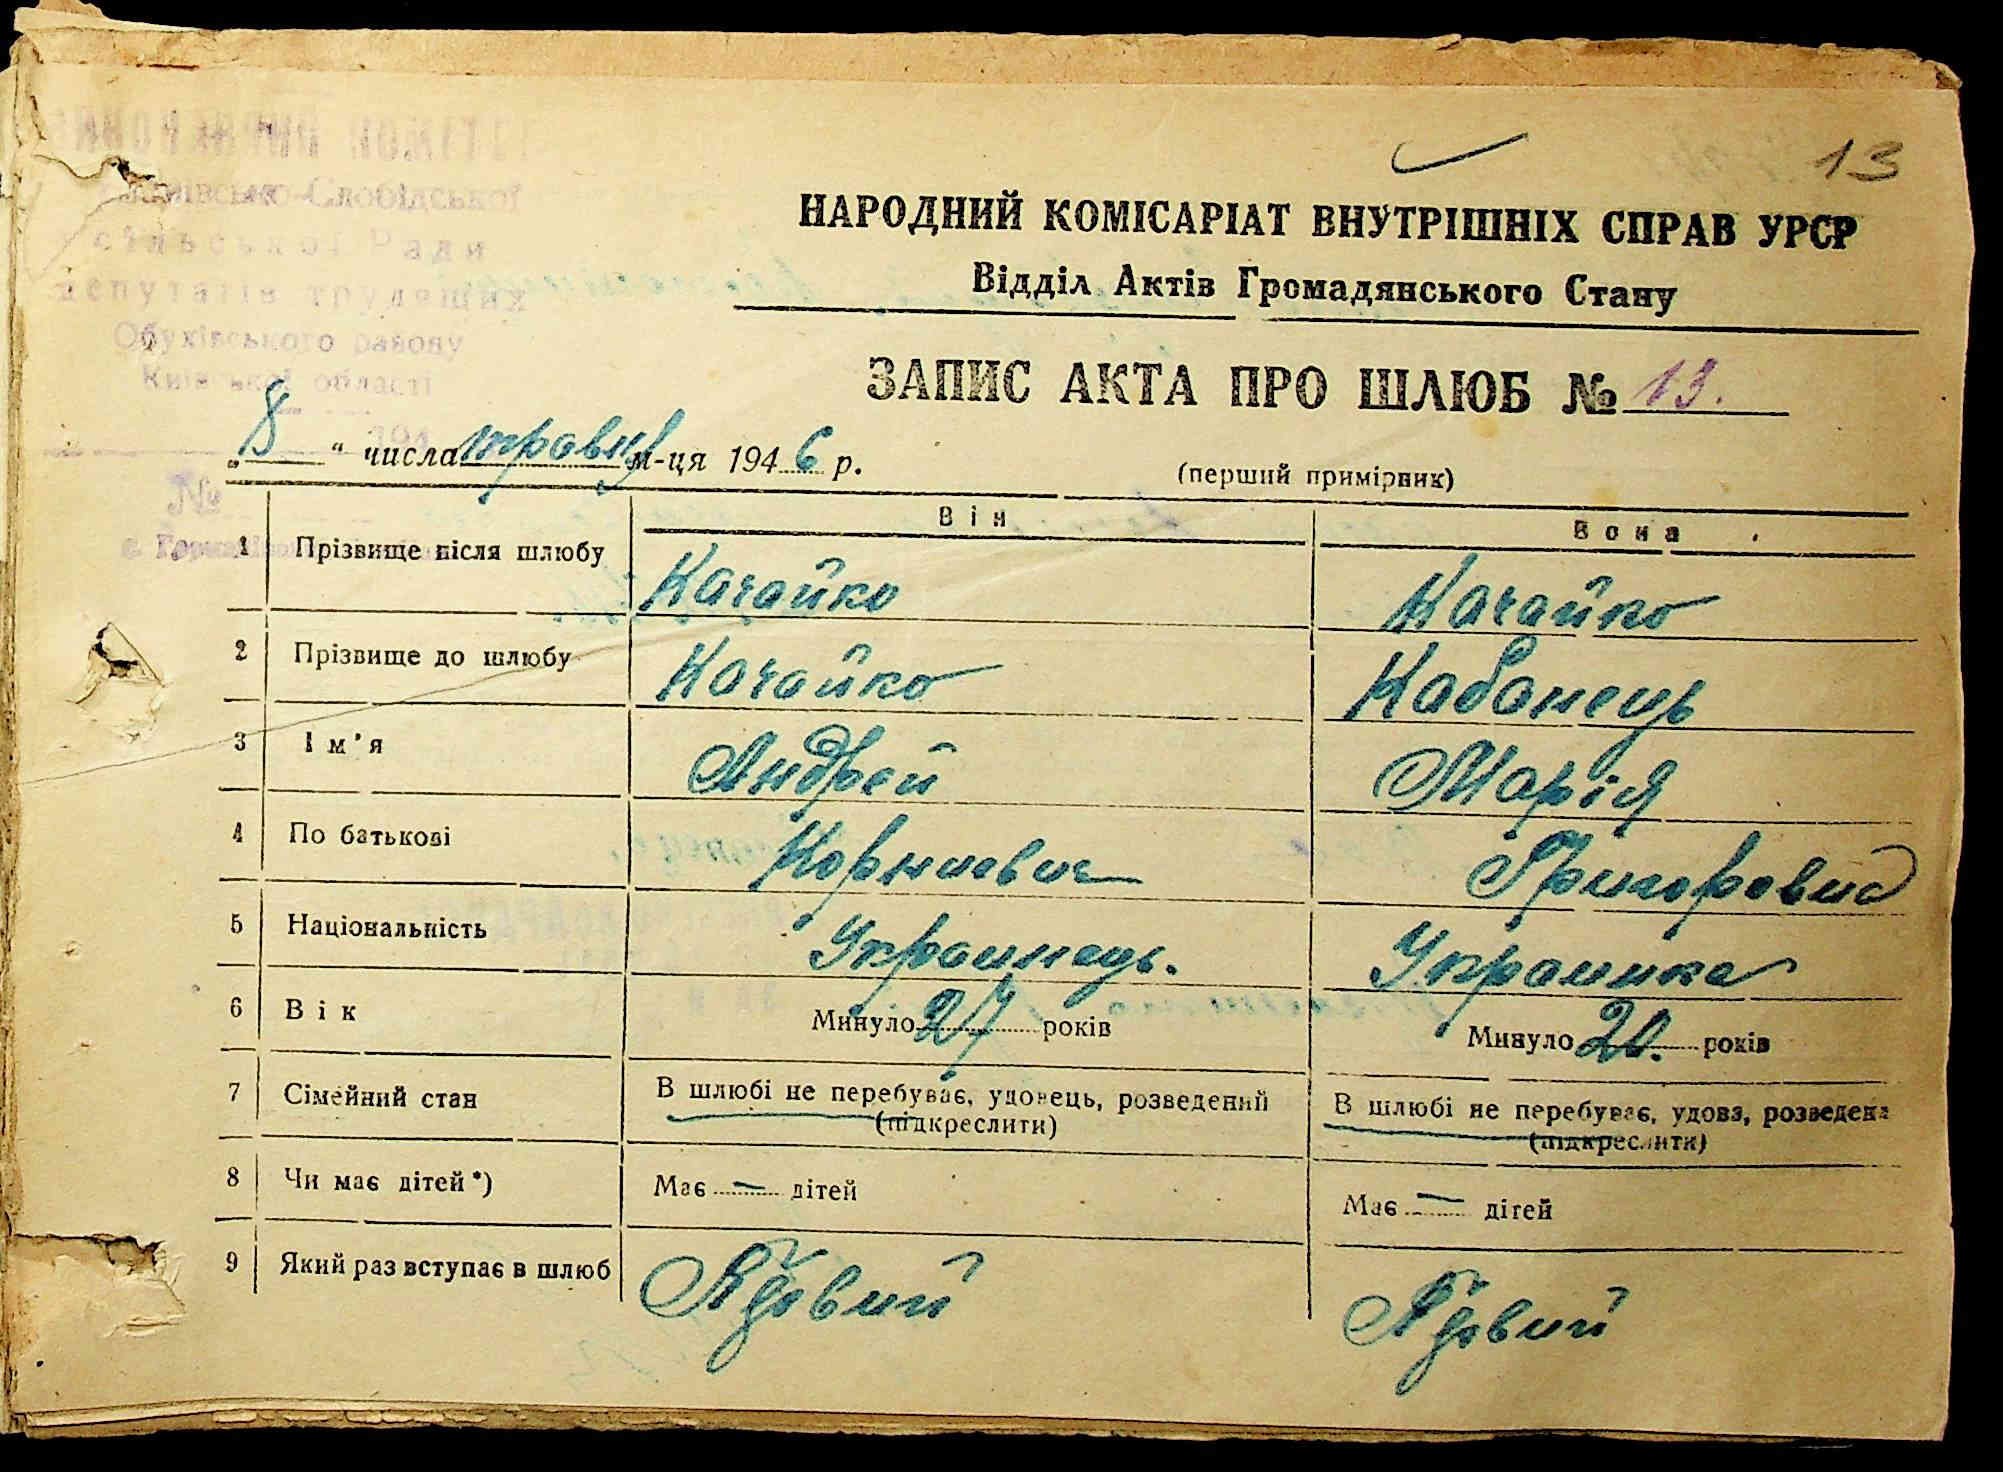 13
НАРОДНИЙ КОМІСАРІАТ ВНУТРІШНІХ СПРАВ УРСР
Відділ Актів Громадянського Стану
Слобідської
сільської Ради
депутатів трудящих
Обухівського району
Київської області
194
№
ЗАПИС АКТА ПРО ШЛЮБ № 13.
„8“ числа травня м-ця 1946 р.
(перший примірник)
Він Вона
1 Прізвище після шлюбу Качайко Качайко
2 Прізвище до шлюбу Качайко Кабанець
3 Ім'я Андрей Марія
4 По батькові Корниевич
5 Національність Украинець. Украинка
6 Вік Минуло 27 років Минуло 20. років
7 Сімейний стан В шлюбі не перебуває, удовець, розведений В шлюбі не перебуває, удова, розведена
(підкреслити) (підкреслити)
8 Чи має дітей *) Має — дітей Має — дітей
9 Який раз вступає в шлюб